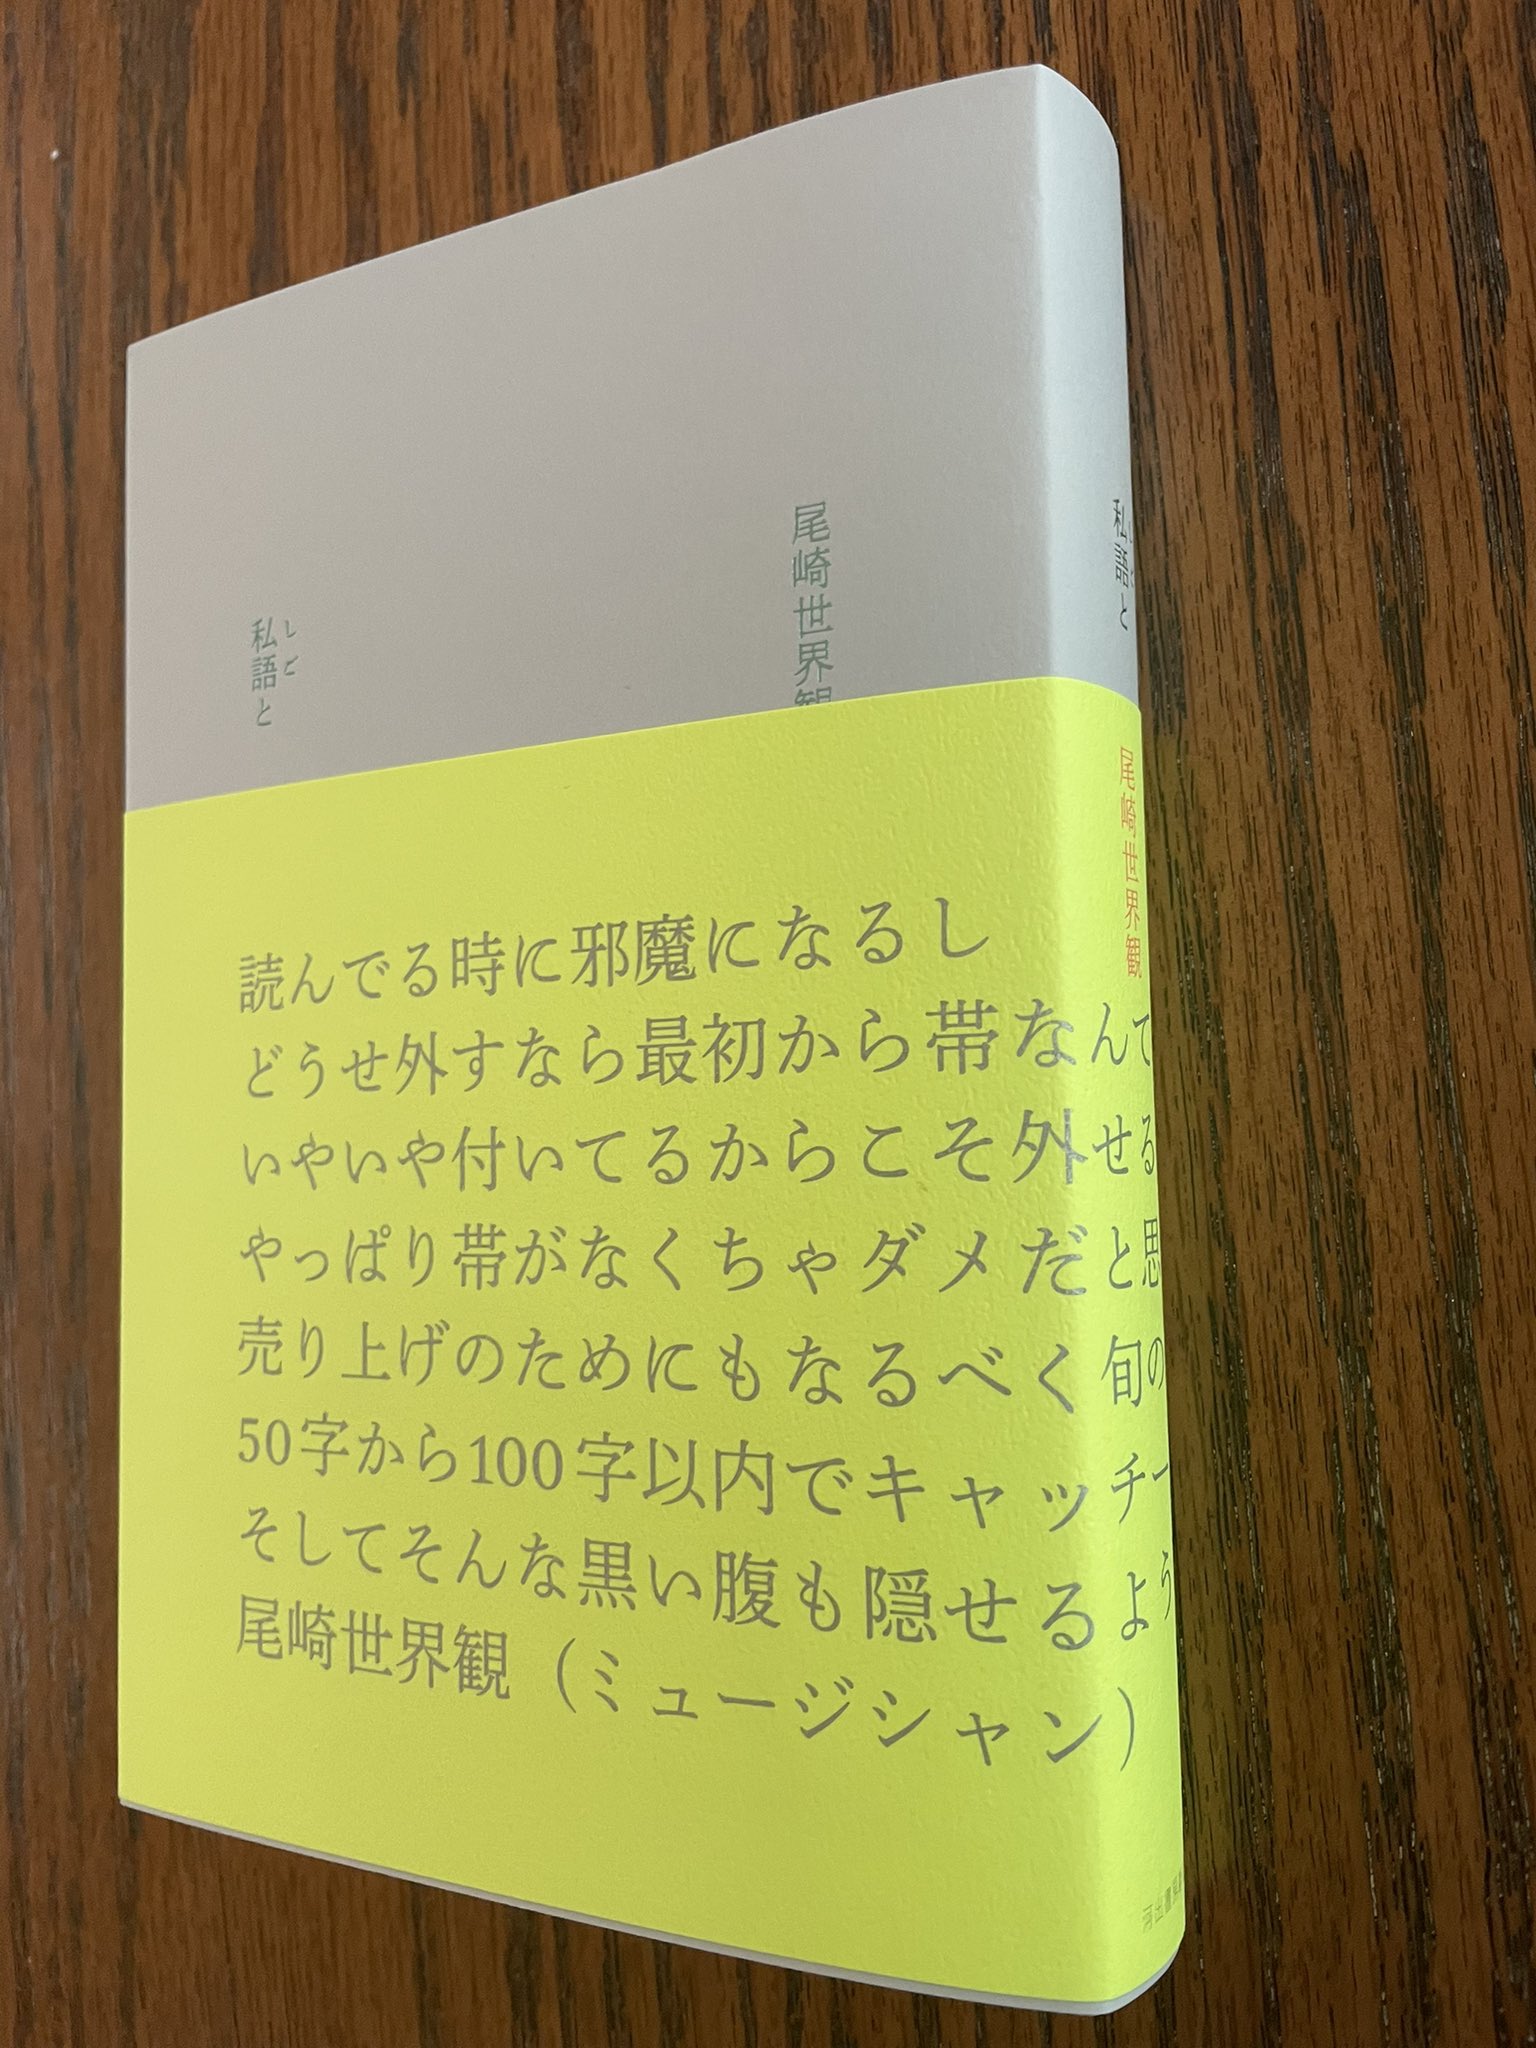 尾崎世界観
私語と
しご
私語と
尾崎世界観
読んでる時に邪魔になるし
どうせ外すなら最初から帯なんて
いやいや付いてるからこそ外せる
やっぱり帯がなくちゃダメだと思
売り上げのためにもなるべく旬の
50字から100字以内でキャッチー
そしてそんな黒い腹も隠せるよう
尾崎世界観（ミュージシャン）
河出書房